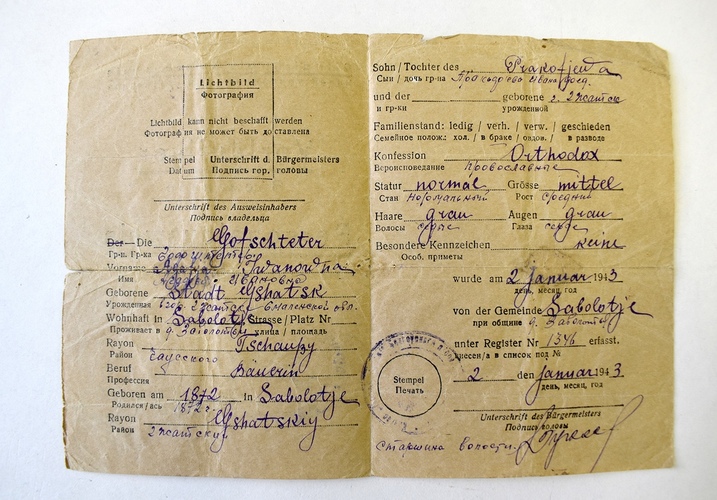 Lichtbild
Фотография
Lichtbild kann nicht beschafft werden
Фотография не может быть доставлена
Stempel Unterschrift d. Bürgermeisters
Datum Подпись гор. головы
Unterschrift des Ausweisinhabers
Подпись владельца
Der — Die Gofschteter
Гр-н. Гр-ка
Vorname Iwanowna
Имя Ивановна
Geborene Stadt Gshatsk
Урожденная
Wohnhaft in Sabolotje Strasse / Platz Nr
Проживает в улица / площадь
Rayon Tschaussy
Район Чаусского
Beruf Bäuerin
Профессия
Geboren am 1872 in Sabolotje
Родился/ась 1872 г
Rayon Gshatskiy
Район Гжатский
Sohn / Tochter des Prakofjewa
Сын / дочь гр-на
und der geborene г. Гжатск
и гр-ки урожденной
Familienstand: ledig / verh. / verw. / geschieden
Семейное полож.: хол. / в браке / овдов. / в разводе
Konfession Orthodox
Вероисповедание Православные
Statur normal Grösse mittel
Стан Нормальный Рост Средний
Haare grau Augen grau
Волосы серые Глаза серые
Besondere Kennzeichen keine
Особ. приметы
wurde am 2 Januar 1943
день, месяц, год
von der Gemeinde Sabolotje
при общине д. Заболотье
unter Register Nr 1346 erfasst.
занесен/а в список под №
2 den Januar 1943
день, месяц, год
Stempel
Печать
Unterschrift des Bürgermeisters
Подпись головы
Старшина волости